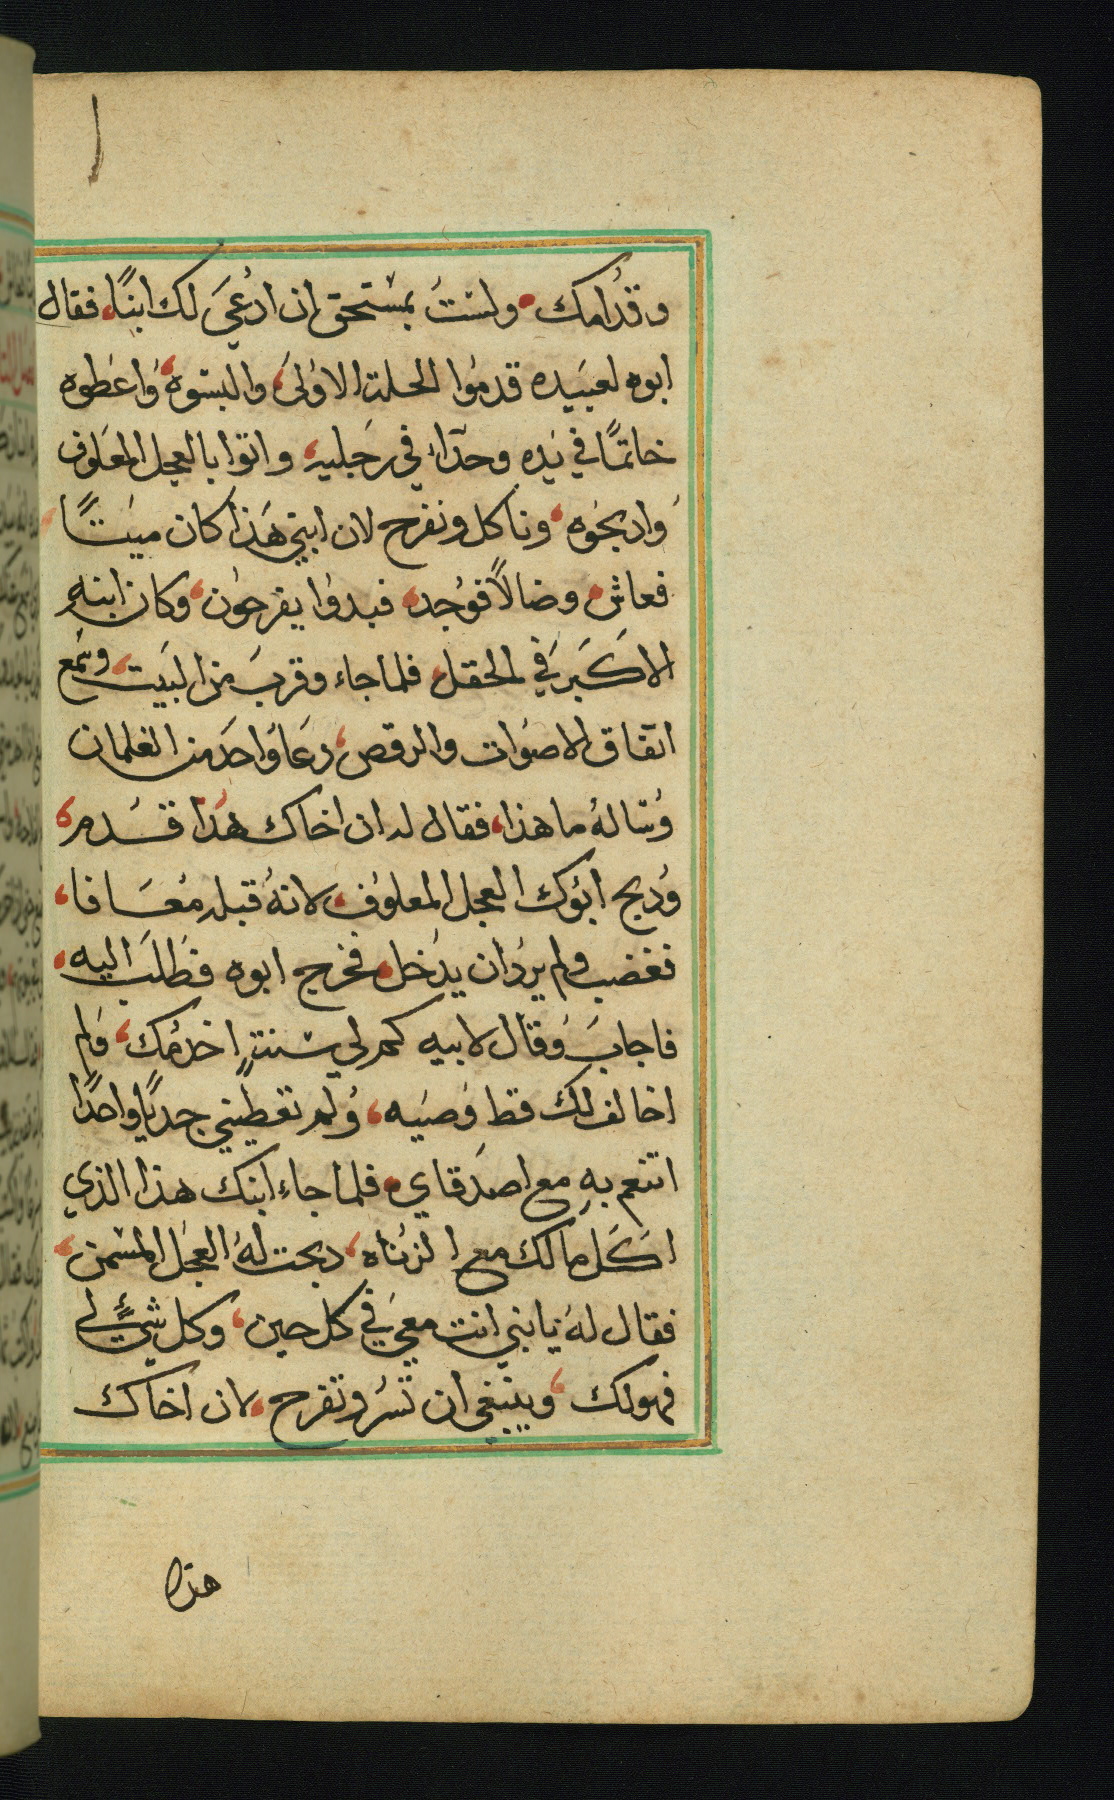 وقدامك ولستُ بمستحق ان ادُعىَ لك ابنًا، فقال
ابوه لعبيده قدموُا الحلة الاوُلىَ، والبسوه، وُاعطوه
خاتمًا في يَده وحدآءً في رجليه، واتوا بالعجل المعَلوف
وُادبحوُه، وناكل ونفرح لان ابني هَذا كان ميتًا
فعاش وضالاً فوُجد، فبدوُا يفرحوُن، وكان ابنهِ
الاكَبَر في الحقل، فلما جاء وقربَ من البَيت، وسَمع
اتفاق الاصوَات والرقص، دعَا وُاحدَ من الغلمان
وُسالهُ ما هذا، فقال له ان اخاك هدَا قدم،
وُدبح ابوُك العجل المعلوُف، لانهُ قبله معُافا،
فغضب ولم يردُ ان يدُخل، فخرج ابوه فطَلبَ اليه،
فاجابَ وُقال لابيه كم لي سنتهٍ اخدمُك، ولَم
اخالف لك قط وُصيَه، وُلم تعطيني جديًا واحدًا
اتنعم بهِ مع اصدَقاي، فلما جاء ابنك هذا الذي
اكَل مالك مع الزُناه، دبحت لهُ العجَل المسمن،
فقال لهُ يا بني انت معىَ في كل حين، وكل شيءٍ لي
فهو لك، وينبغي ان تسُر وتفرح، لان اخاك
هدا